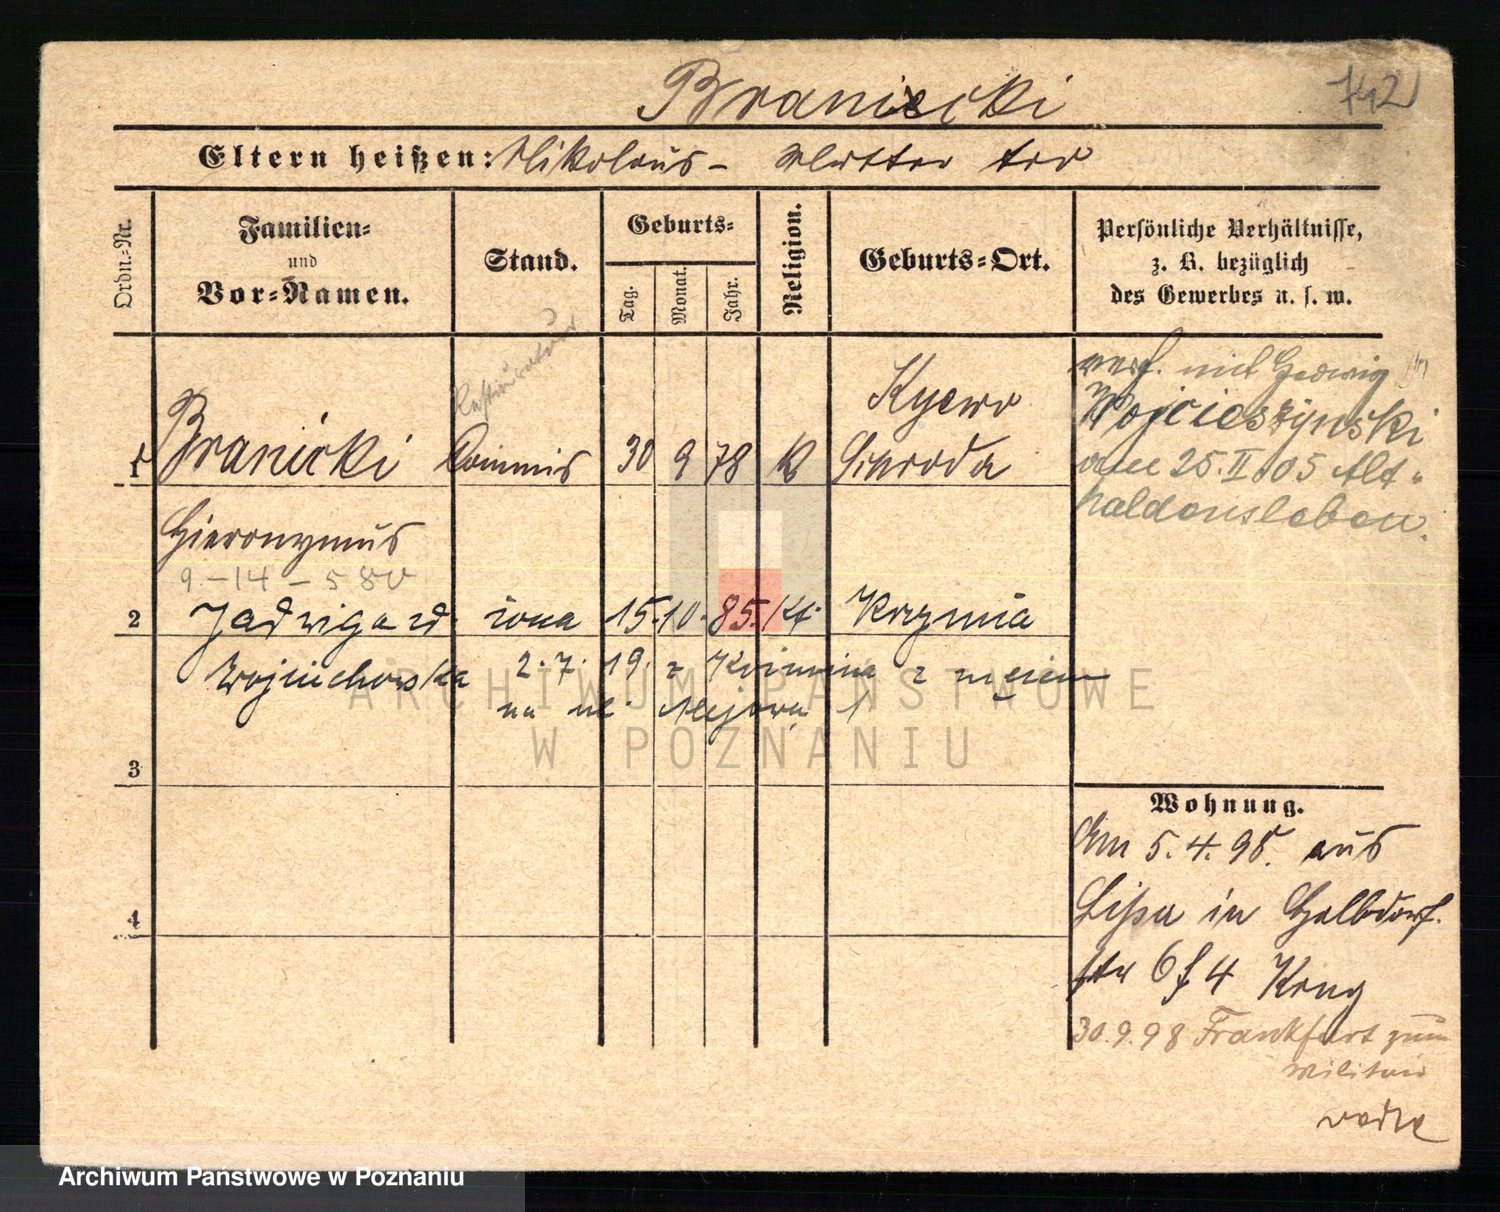 Branicki
742
Eltern heißen: Nikolaus - Mutter tod
Ordn.-Nr.
Familien-
und
Vor-Namen.
Stand.
Geburts-
Tag.
Monat.
Jahr.
Religion.
Geburts-Ort.
Persönliche Verhältnisse,
z. B. bezüglich
des Gewerbes u. s. w.
1 Branicki Commis 30 9 78 K Kijewo
Schroda
Hieronymus
9 - 14 - 580
verh. mit Hedwig
Wojcieszynski
am 25. II. 05 Alt-
haldensleben.
2 Jadwiga zd. żona 15. 10. 85. kt. Krzynia
Wojciechowska 2. 7. 19. z z mężem
na ul.
ARCHIWUM PAŃSTWOWE
W POZNANIU
3
4
Wohnung.
Am 5. 4. 95. aus
Lissa in Halbdorf-
str 6 f 4 Krug
30. 9. 98 Frankfurt zum
Militair
Archiwum Państwowe w Poznaniu